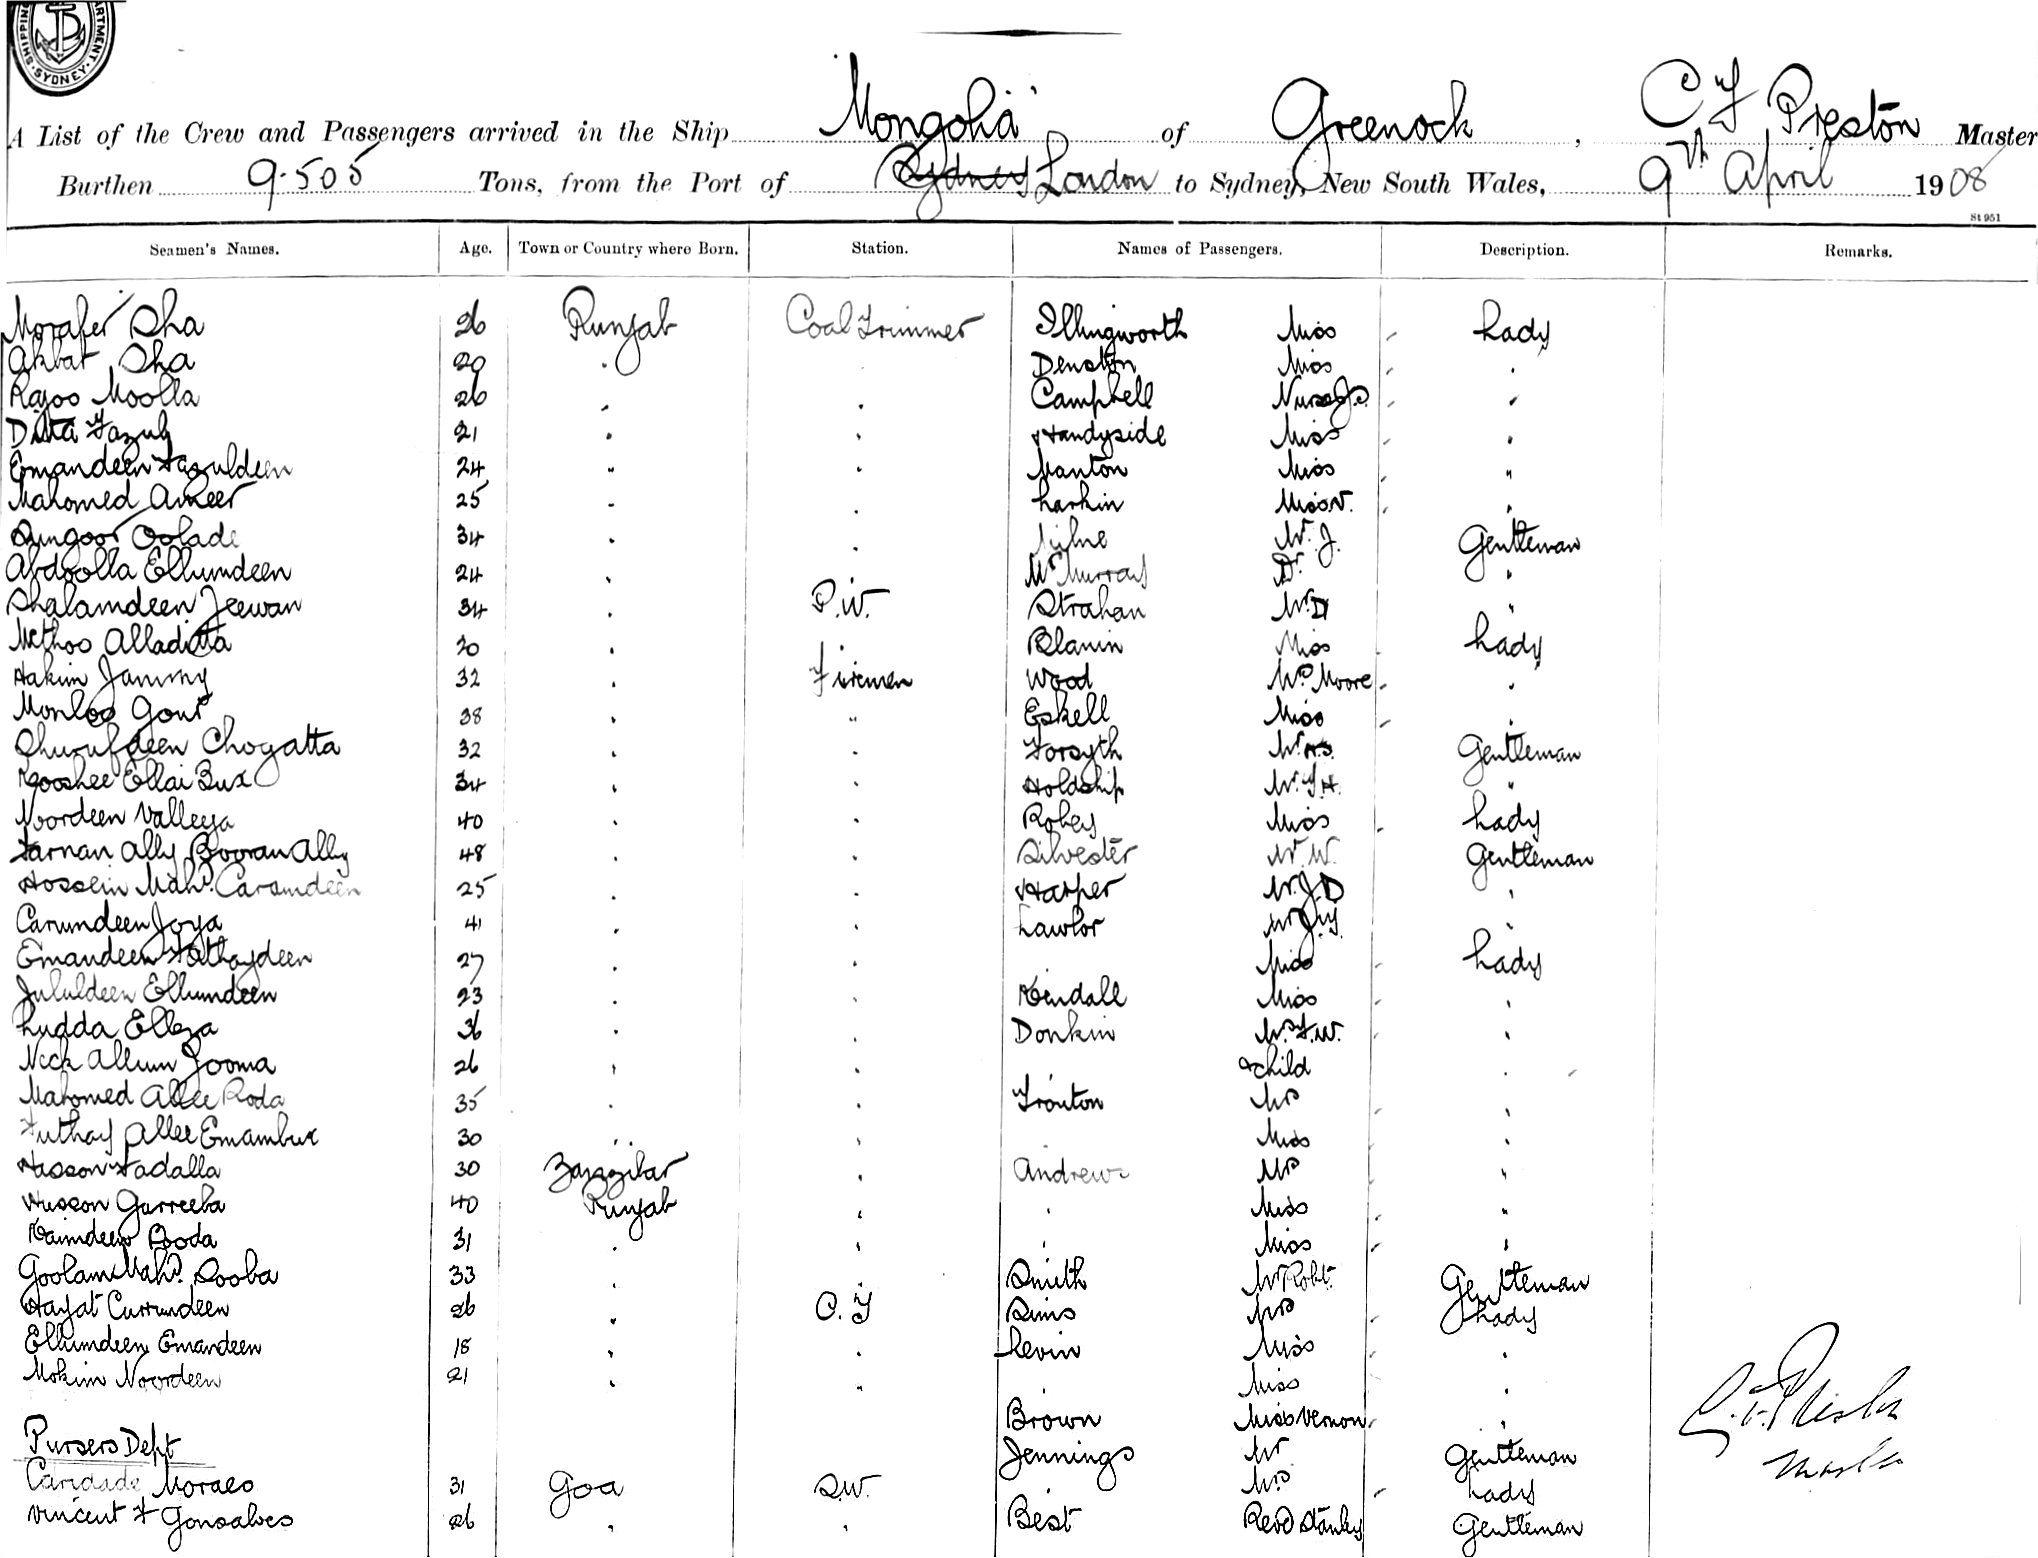 SHIPPING DEPARTMENT SYDNEY
A List of the Crew and Passengers arrived in the Ship "Mongolia" of Greenock, C F Preston Master
Burthen 9.505 Tons, from the Port of Sydney London to Sydney, New South Wales, 9th April 1908
St 951
Seamen's Names. Age. Town or Country where Born. Station. Names of Passengers. Description. Remarks.
Morafer Sha 26 Punjab Coal Trimmer Illingworth Miss Lady
Akbat Sha 20 " " Denston Miss "
Rajoo Moolla 26 " " Campbell Nurse "
Ditta Fazul 21 " " Handyside Miss "
Emandeen Fazuldeen 24 " " Manton Miss "
Mahomed Ameer 25 " " Larkin Miss V. "
Sungoor Oolade 34 " " Milne Mr. J. Gentleman
Abdoolla Ellumdeen 24 " McMurray Dr. "
Shalamdeen Jeewan 34 " P.W. Strahan Mr D "
Methoo Alladitta 30 " " Blanin Miss Lady
Hakim Jammy 32 " Firemen Wood Mrs Moore "
Monloo Gour 38 " " Eskell Miss "
Shurufdeen Chogatta 32 " " Forsyth Mr. H.S. Gentleman
Kooshee Ellai Bux 34 " " Holdship Mr. F.H. "
Noordeen Valleya 40 " " Robey Miss Lady
Farnan Ally Booran Ally 48 " " Silvester Mr. W. Gentleman
Hossein Mahd. Caramdeen 25 " " Harper Mr. J D "
Carumdeen Joya 41 " " Lawlor Mr J.J. "
Emandeen Fathaydeen 27 " " Miss Lady
Jululdeen Ellumdeen 23 " " Kendall Miss "
Ludda Elleya 36 " " Donkin Mrs F.W. "
Neck Allum Jooma 26 " " & child "
Mahomed Allee Roda 35 " " Trouton Mrs "
Futhay Allee Emambux 30 " " Miss "
Hasson Fadalla 30 Zanzibar " Andrews Mrs "
Husson Gurreeba 40 Punjab " " Miss "
Kaimdeen Booda 31 " " " Miss "
Goolam Mahd. Sooba 33 " " Smith Mr Robt. Gentleman
Hayat Currumdeen 26 " C.T Sims Mrs Lady
Ellumdeen Emandeen 18 " " Levin Miss "
Mokim Noordeen 21 " " " Miss "
Brown Miss Vernon "
Pursers Dept Jennings Mr Gentleman
Caridade Moraes 31 Goa S.W. Mrs Lady
Vincent F Gonsalves 26 " " Best Revd Stanley Gentleman
C.F. Preston
Master